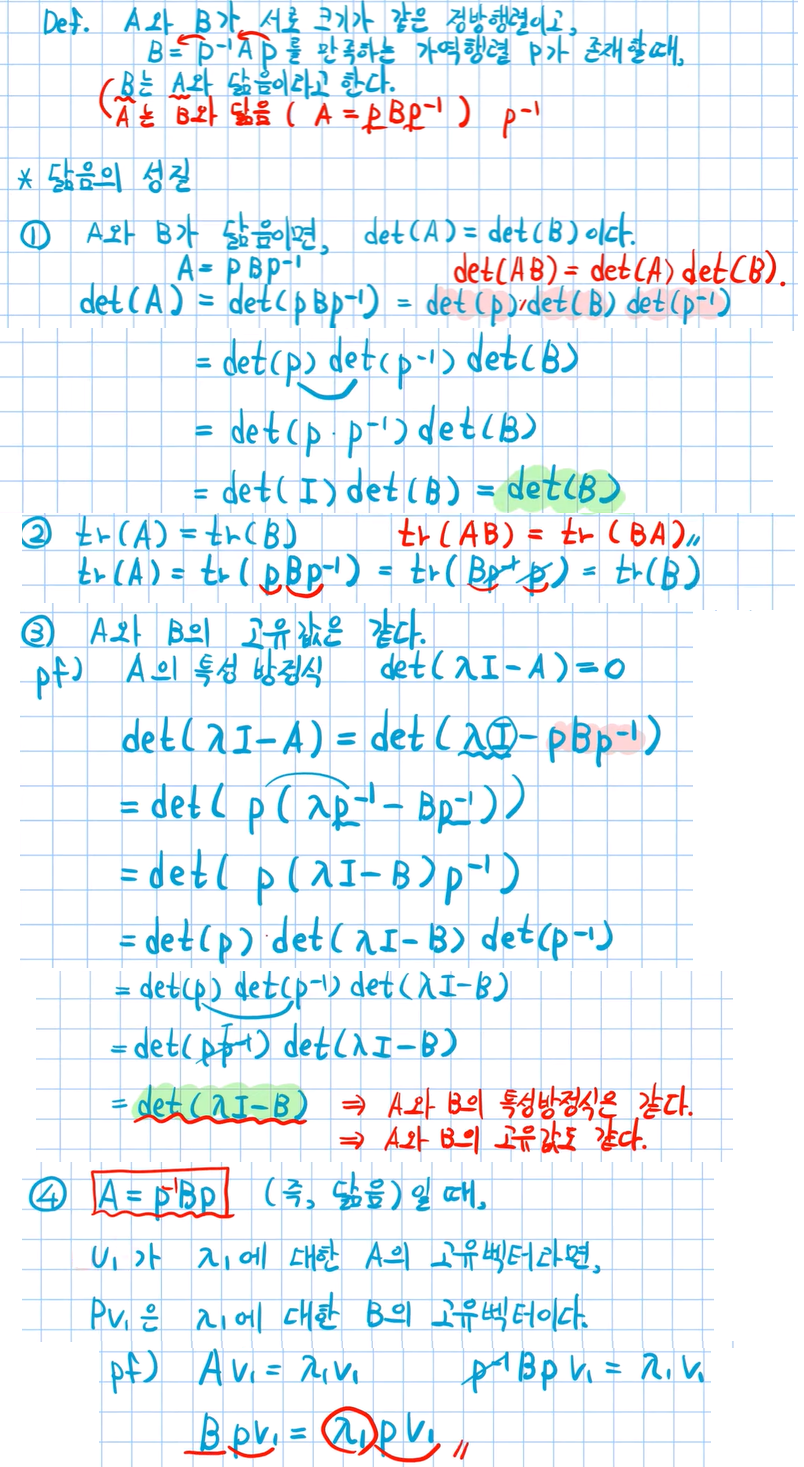 Def. A와 B가 서로 크기가 같은 정방행렬이고,
B = P⁻¹AP를 만족하는 가역행렬 P가 존재할때,
B는 A와 닮음이라고 한다.
A는 B와 닮음 ( A = PBP⁻¹ ) P⁻¹
* 닮음의 성질
① A와 B가 닮음이면, det(A) = det(B)이다.
A = PBP⁻¹ det(AB) = det(A) det(B).
det(A) = det(PBP⁻¹) = det(P) det(B) det(P⁻¹)
= det(P) det(P⁻¹) det(B)
= det(P · P⁻¹) det(B)
= det(I) det(B) = det(B)
② tr(A) = tr(B) tr(AB) = tr(BA)〃
tr(A) = tr(PBP⁻¹) = tr(BP⁻¹P) = tr(B)
③ A와 B의 고유값은 같다.
pf) A의 특성 방정식 det(λI-A) = 0
det(λI-A) = det(λI - PBP⁻¹)
= det( P(λP⁻¹ - BP⁻¹))
= det( P(λI-B)P⁻¹)
= det(P) · det(λI-B) det(P⁻¹)
= det(P) det(P⁻¹) det(λI-B)
= det(PP⁻¹) det(λI-B)
= det(λI-B) ⇒ A와 B의 특성방정식은 같다.
⇒ A와 B의 고유값도 같다.
④ A = P⁻¹BP (즉, 닮음)일 때,
v₁가 λ₁에 대한 A의 고유벡터라면,
Pv₁은 λ₁에 대한 B의 고유벡터이다.
pf) Av₁ = λ₁v₁ P⁻¹BPv₁ = λ₁v₁
BPv₁ = λ₁Pv₁〃